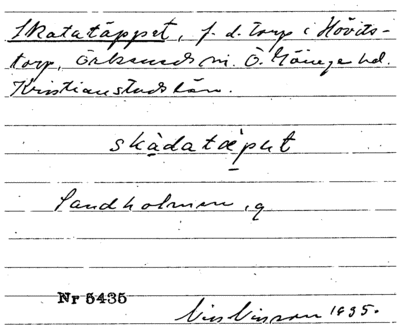 Skatatäppet, f. d. torp i Hövits-
torp, Örkeneds sn. Ö. Göinge hd.
Kristianstads län.
skàdatæ̀put
Sandholmen, q
Nr 5435
1935.